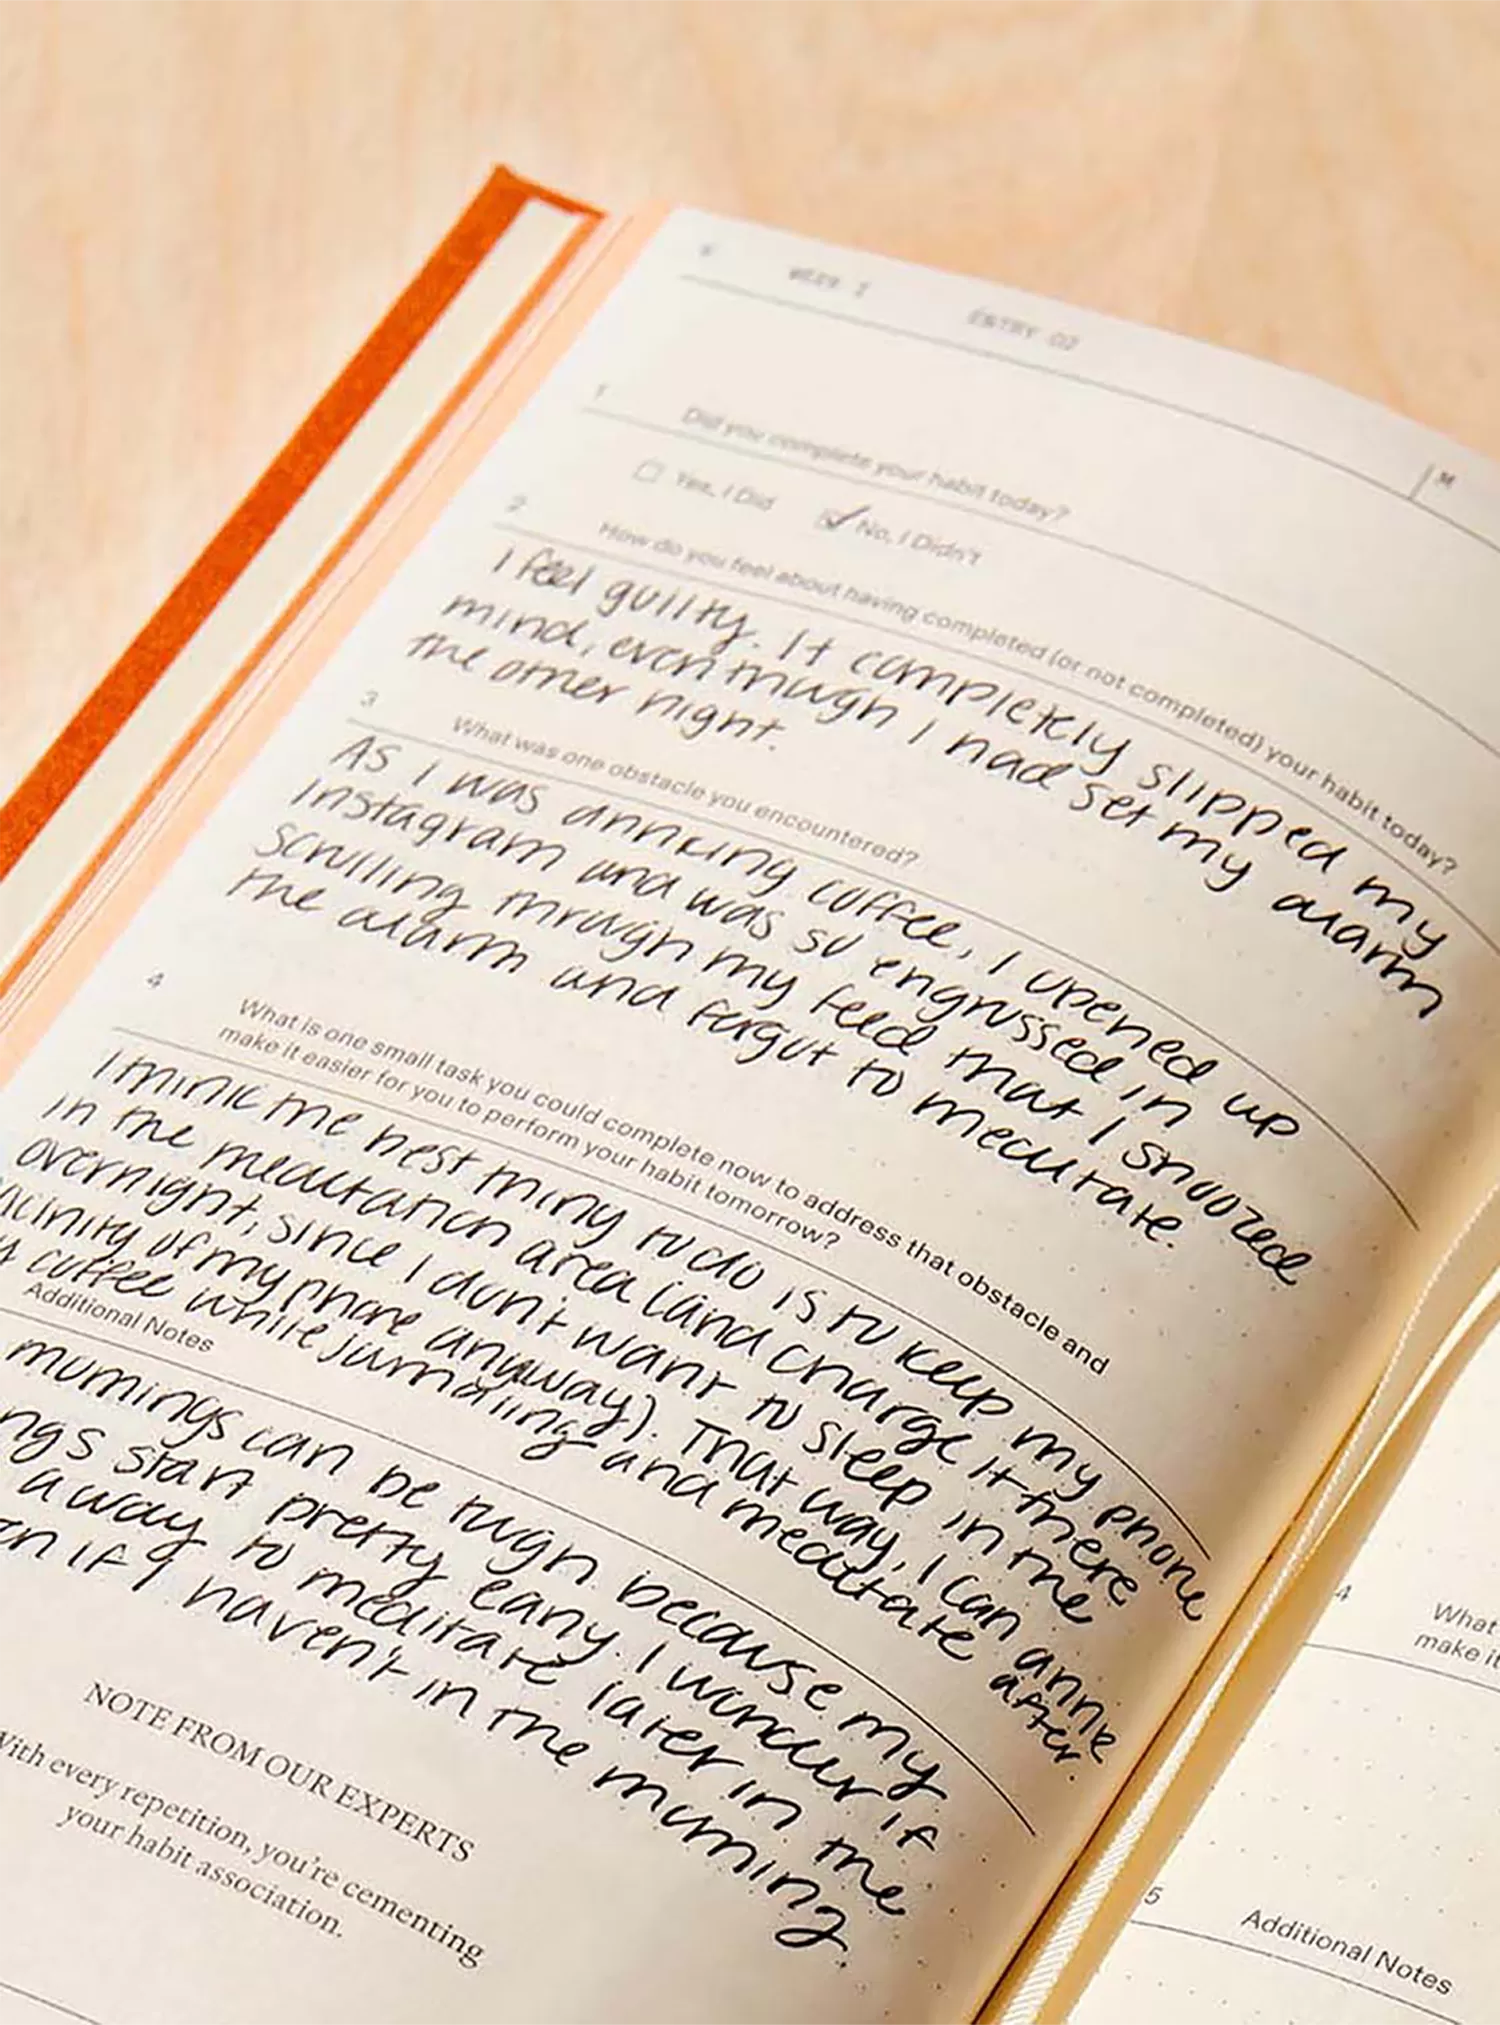 WEEK
ENTRY 02
M
1
Did you complete your habit today?
Yes, I Did
No, I Didn't
2
How do you feel about having completed (or not completed) your habit today?
I feel guilty. It completely slipped my
mind, even though I had set my alarm
the other night.
3
What was one obstacle you encountered?
As I was drinking coffee, I opened up
Instagram and was so engrossed in
scrolling through my feed that I snoozed
the alarm and forgot to meditate.
4
What is one small task you could complete now to address that obstacle and
make it easier for you to perform your habit tomorrow?
I think the best thing to do is to keep my phone
in the meditation area (and charge it there
overnight, since I don't want to sleep in the
vicinity of my phone anyway). That way, I can drink
coffee while journaling and meditate after.
Additional Notes
mornings can be tough because my
start pretty early. I wonder if
away to meditate later in the
if I haven't in the morning.
NOTE FROM OUR EXPERTS
With every repetition, you're cementing
your habit association.
4
What
make it
5
Additional Notes